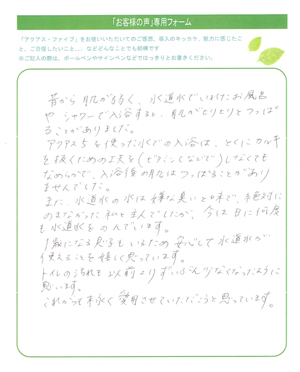 「お客様の声」専用フォーム
「アクアス・ファイブ」をお使いいただいてのご感想、導入のキッカケ、魅力に感じたこと、ご自慢したいこと…、などどんなことでも結構です
※ご記入の際は、ボールペンやサインペンなどではっきりとお書きください。
昔から肌が弱く、水道水でいれたお風呂
やシャワーで入浴すると、肌がピリピリとつっぱ
ることがありました。
アクアス5を使った水での入浴は、とくにカルキ
を抜くための工夫を しなくても
なめらかで、入浴後の肌はつっぱることがあり
ませんでした。
また、水道水の水は嫌な臭いと味で、絶対に
のまなかった私と主人でしたが、今は日に何度
も水道水をのんでいます。
1歳になる息子もいるため安心して水道水が
使えることを嬉しく思っています。
トイレの汚れも以前よりずいぶん少なくなったように
思います。
これからも末永く愛用させていただこうと思っています。